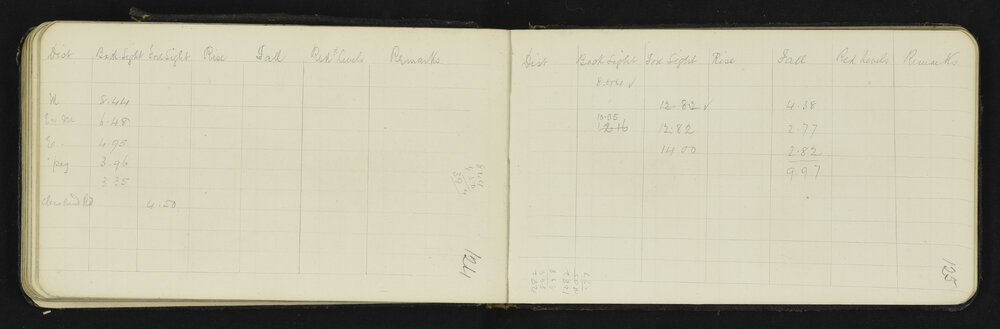 Dist Back Sight Fore Sight Rise Fall Red Levels Remarks
M 8.44
6.48
4.95
peg 3.96
3.35
4.50
124
Dist Back Sight Fore Sight Rise Fall Red Levels Remarks
8.44 ✓
12.82 ✓ 4.38
10.05
12.16 12.82 2.77
14.00 2.82
9.97
125